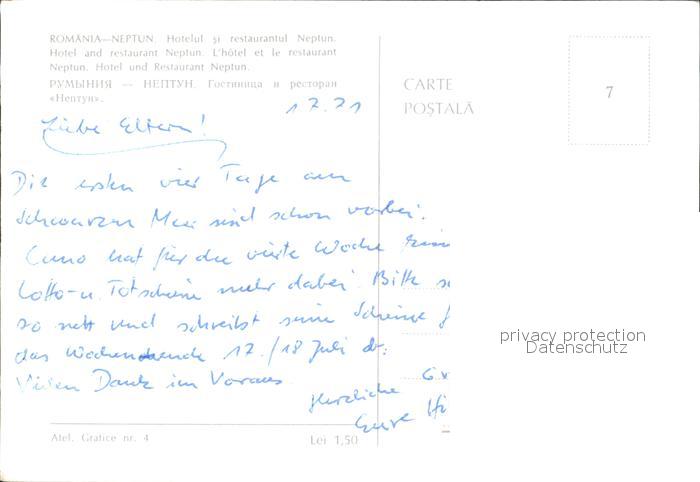 ROMÂNIA—NEPTUN. Hotelul și restaurantul Neptun.
Hotel and restaurant Neptun. L'hôtel et le restaurant
Neptun. Hotel und Restaurant Neptun.
РУМЫНИЯ — НЕПТУН. Гостиница и ресторан
«Нептун».
CARTE
POȘTALĂ
7
Liebe Eltern!
Die ersten vier Tage am
Schwarzen Meer sind schon vorbei.
hat für die vierte Woche
Lotto-u. mehr dabei. Bitte
so nett und schreibt seine Scheine
das Wochenende 17./18 Juli
Vielen Dank im Voraus
Herzliche
Eure
Atel. Grafice nr. 4
Lei 1,50
privacy protection
Datenschutz